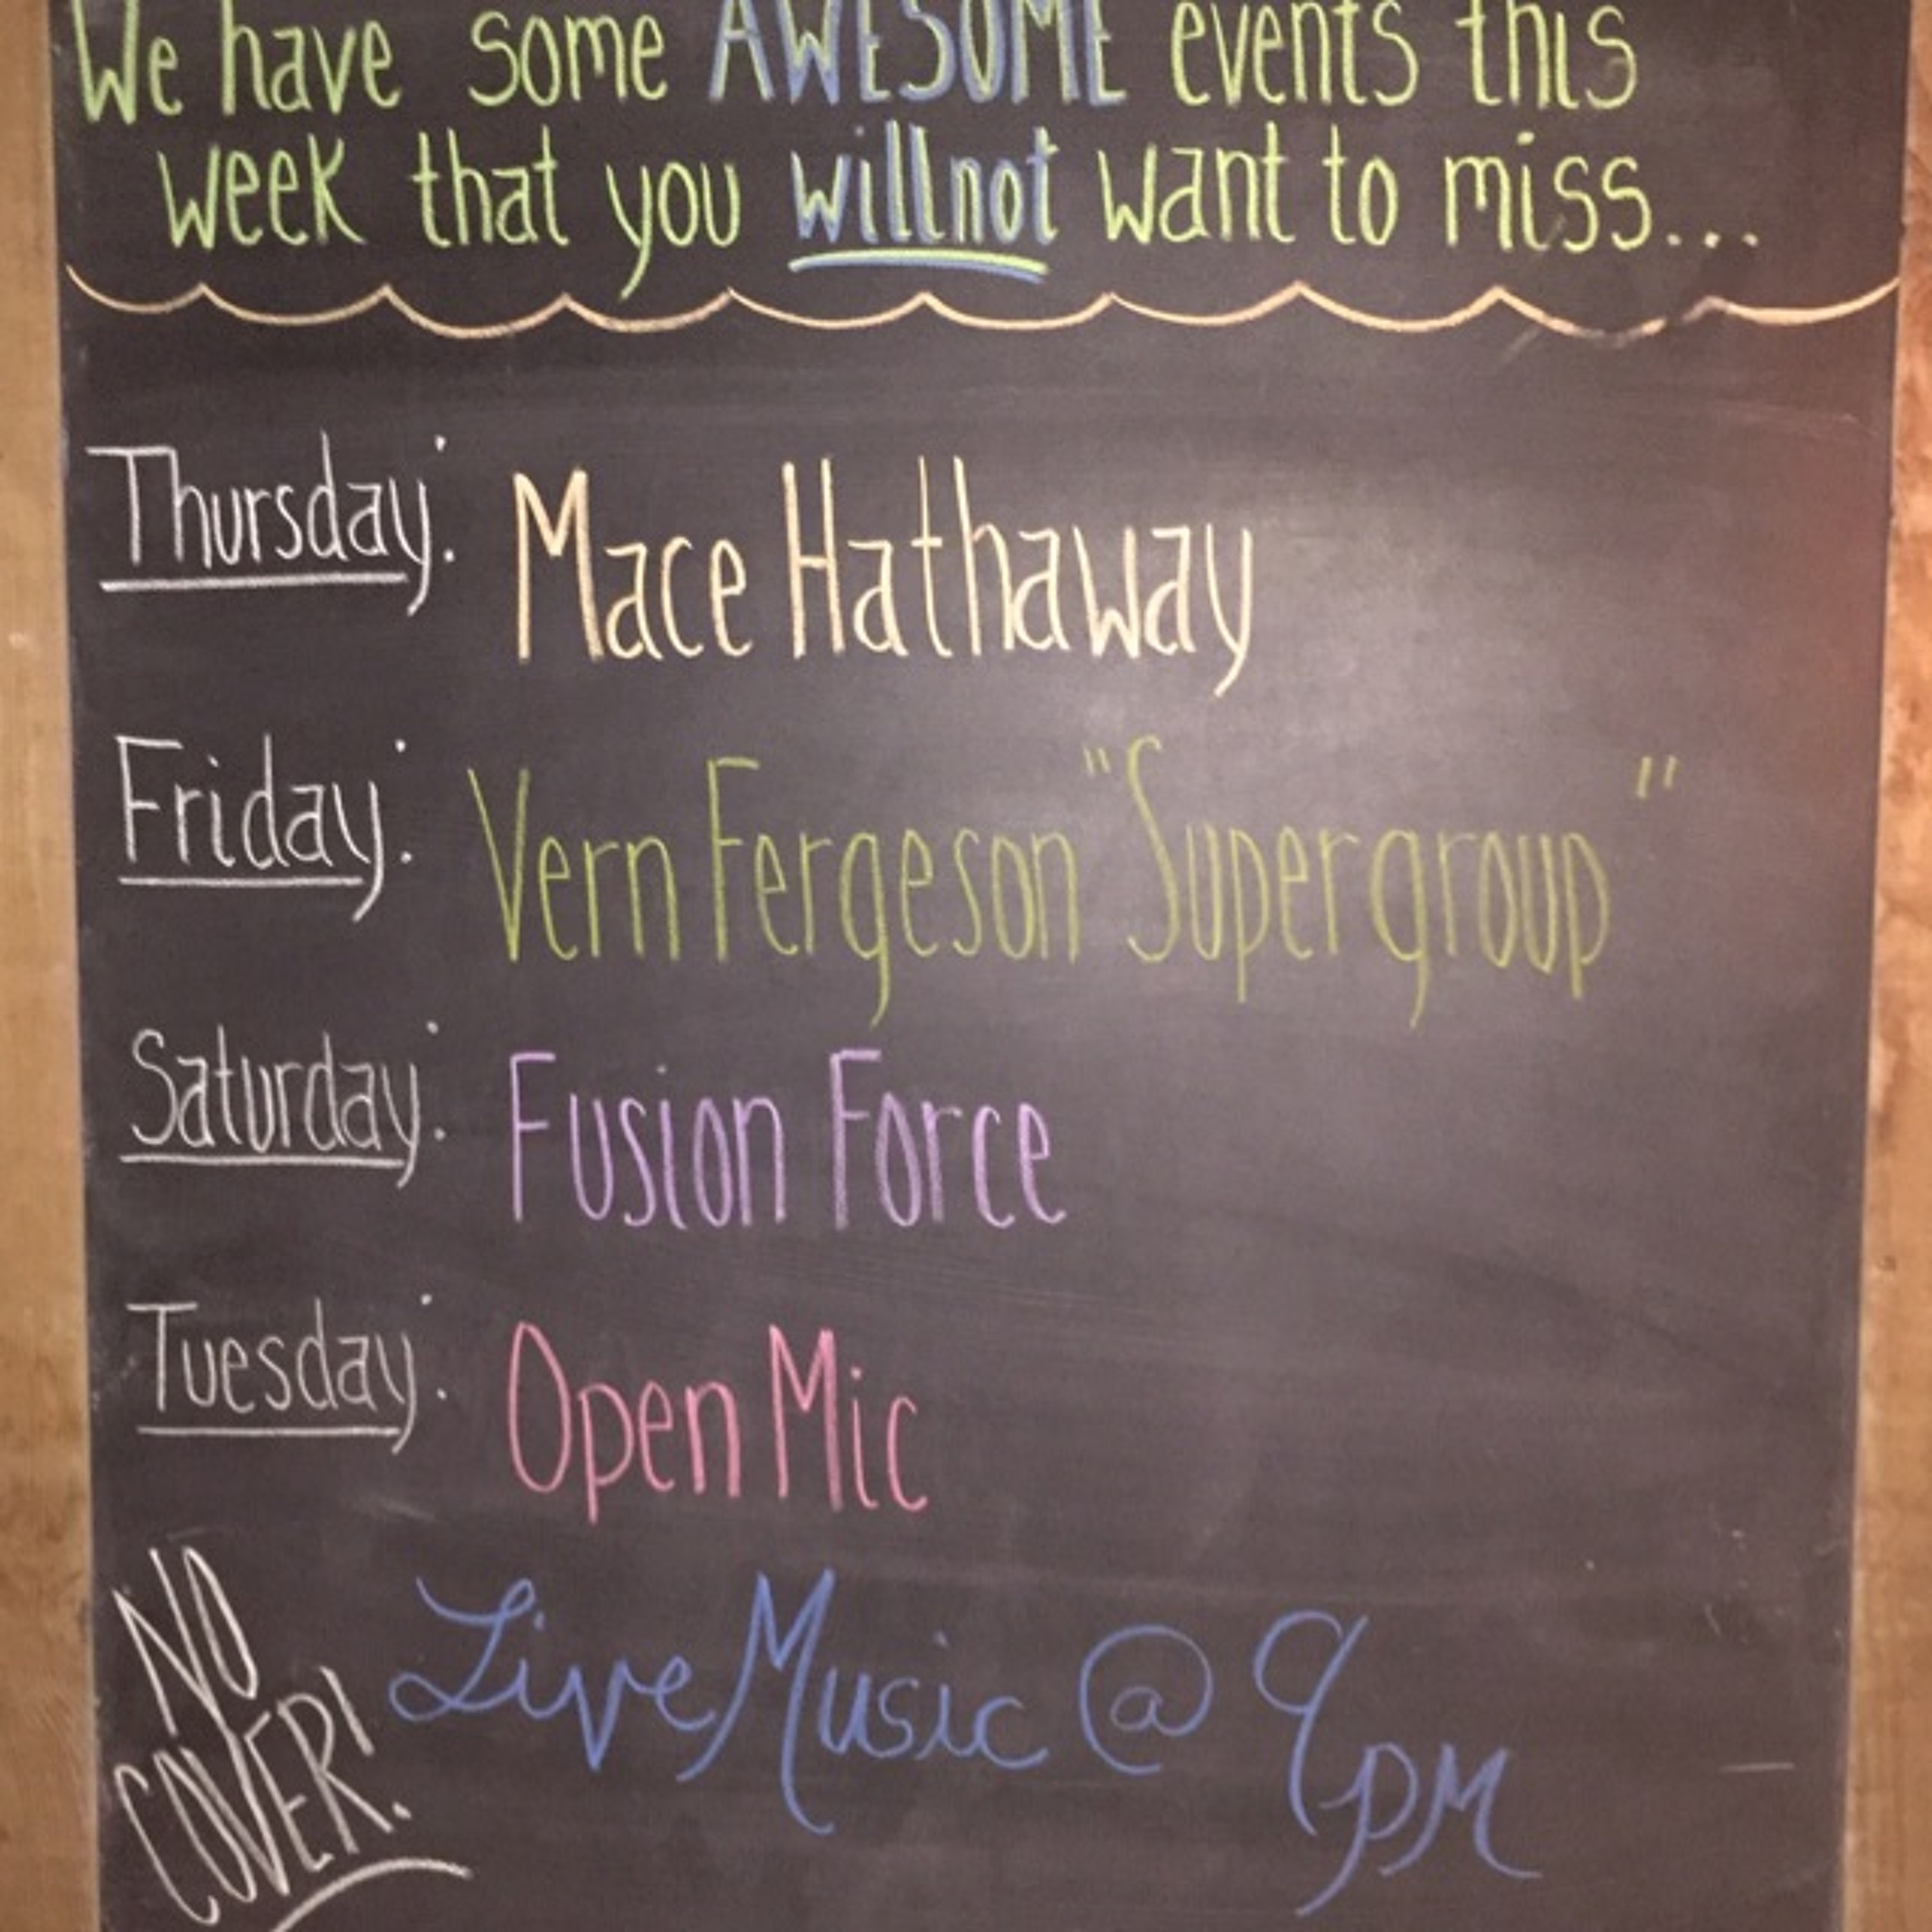 We have some AWESOME events this
week that you will not want to miss...
Thursday: Mace Hathaway
Friday: Vern Fergeson "Supergroup"
Saturday: Fusion Force
Tuesday: Open Mic
NO
COVER!
Live Music @ 9
PM